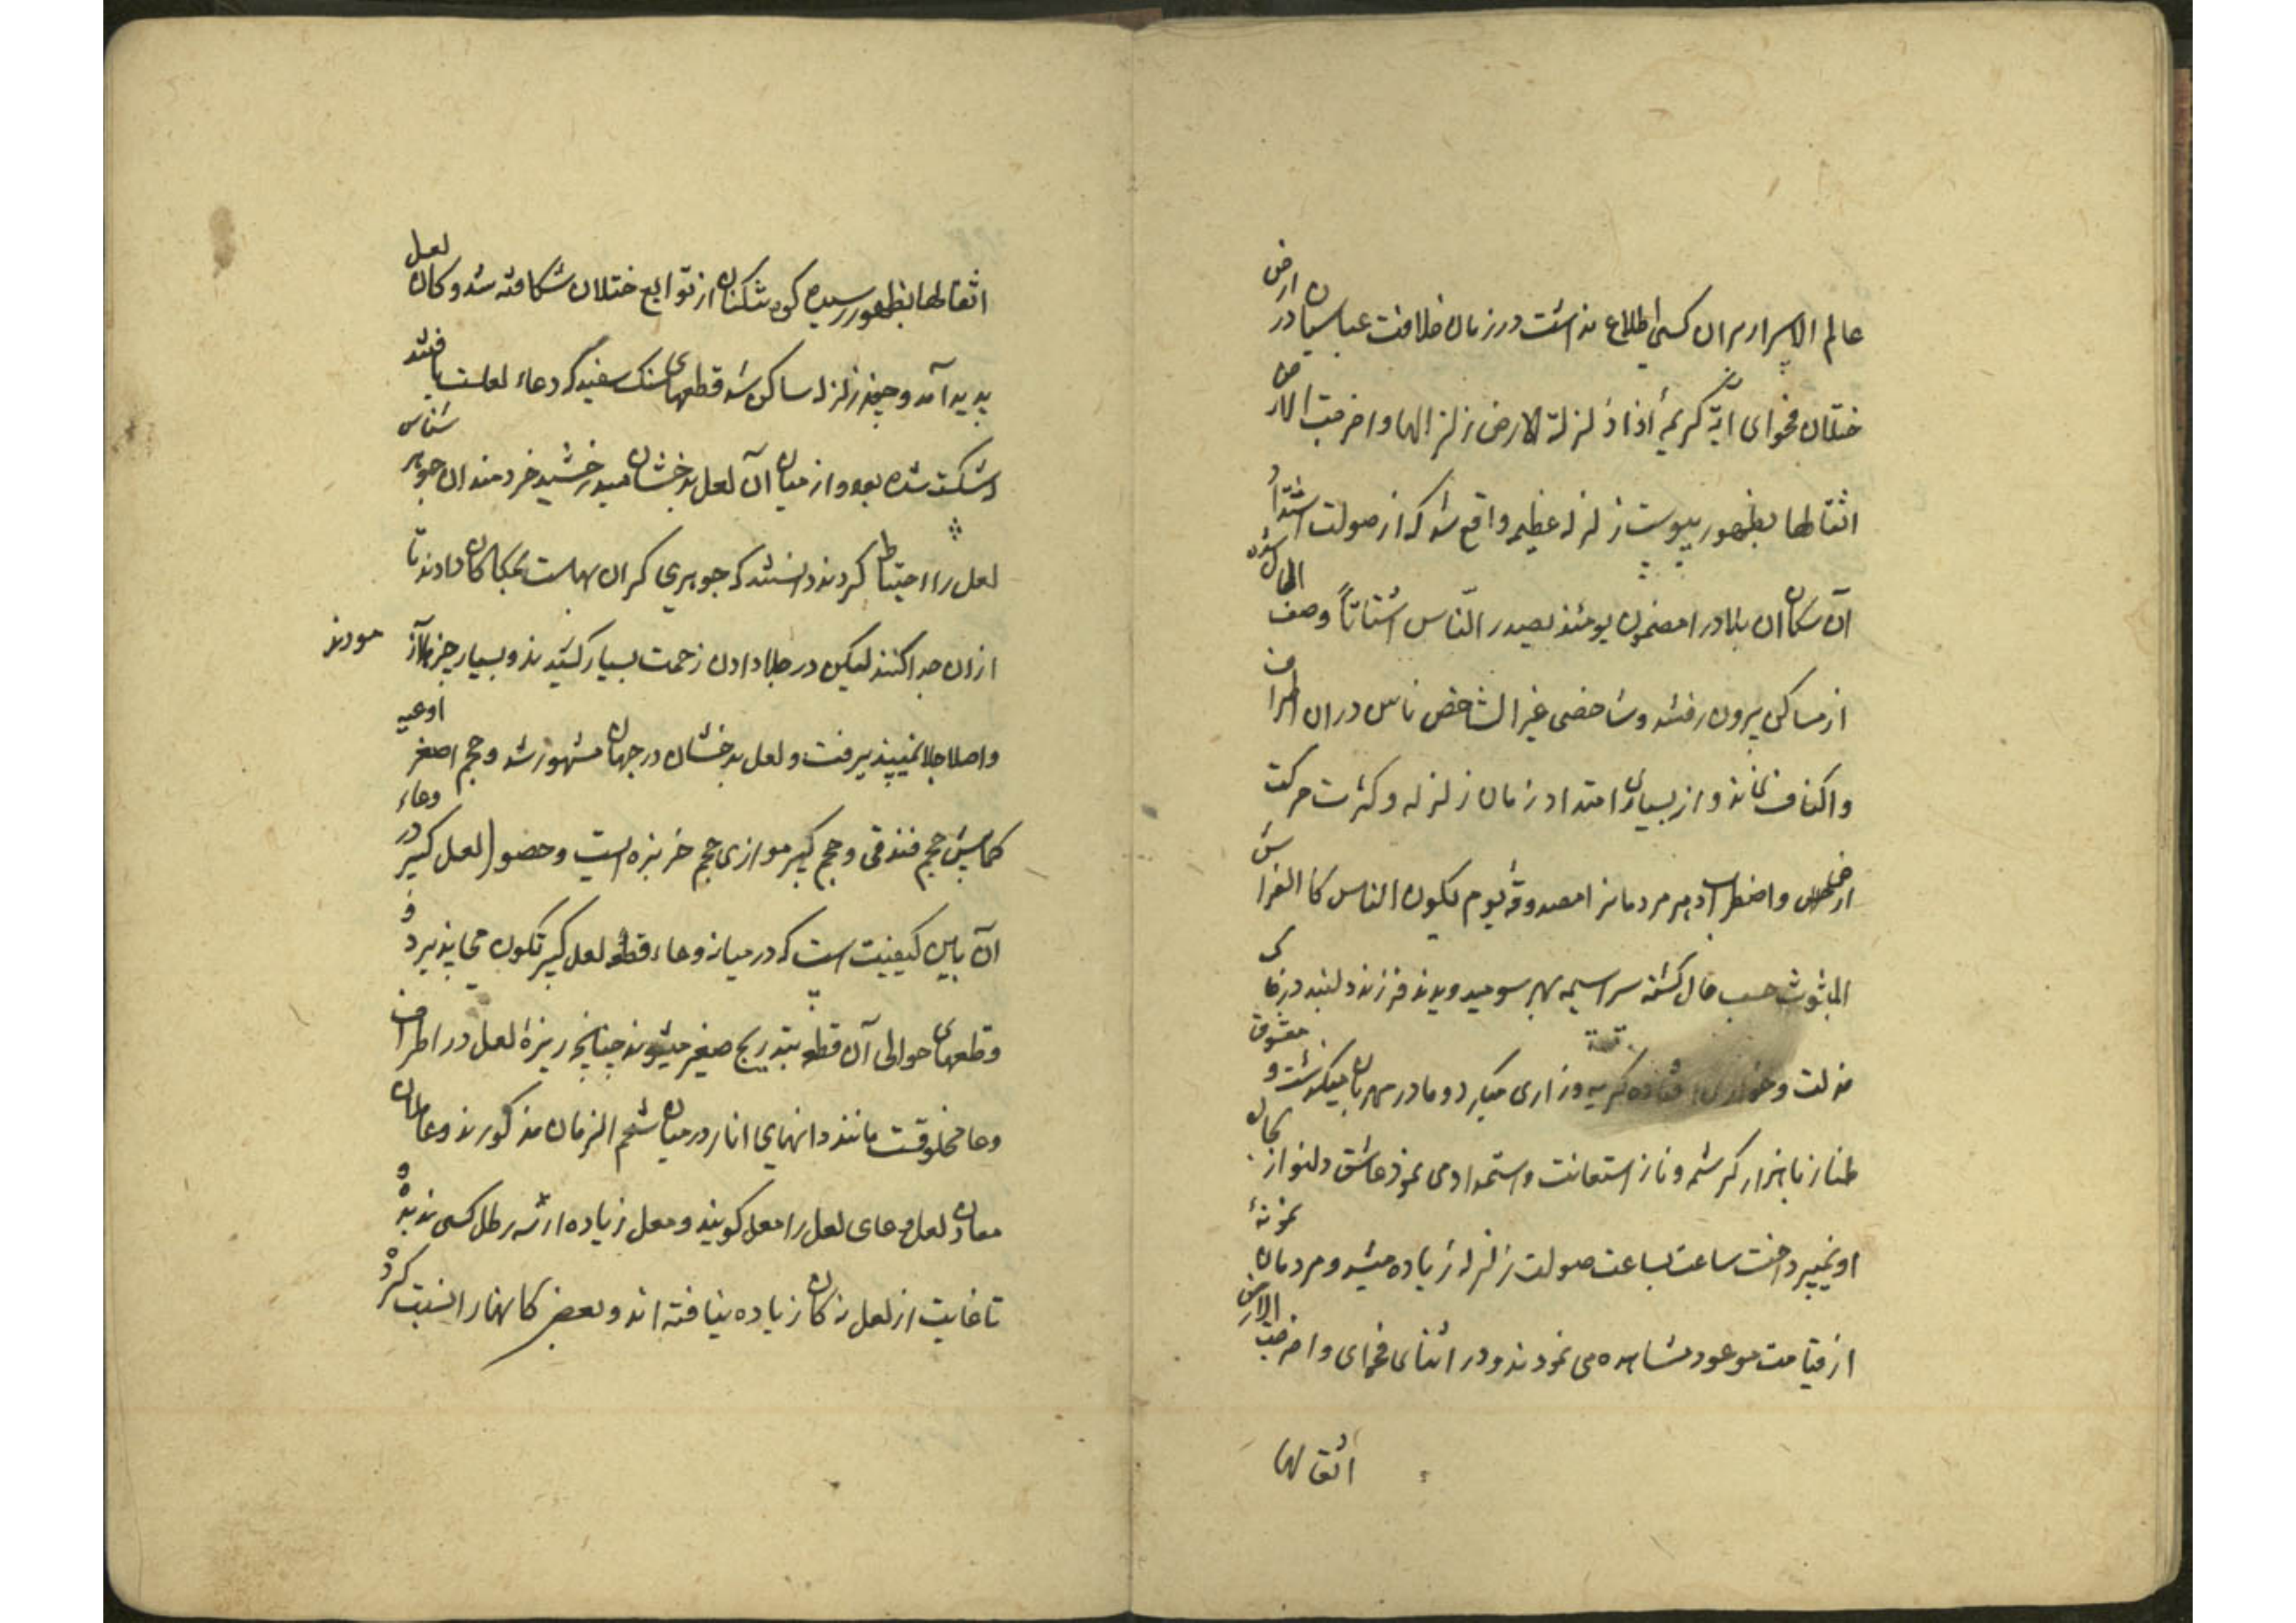 عالم الاسرار بران کسی اطلاع نداشت در زمان خلافت عباسیان در ارض
ختلان فحوای آیهٔ کریمهٔ اذا زلزلة الارض زلزالها واخرجت الارض
اثقالها بظهور پیوست زلزله عظیم واقع شد که از صولت اشتداد
آن سکان ان بلاد را مضمون یومئذ یصدر الناس اشتاتاً وصف الحال شده
از مساکن بیرون رفتند و شاخصی غیر الشاخص ناس در ان اطراف
واکناف نماند و از بسیاری امتداد زمان زلزله و کثرت حرکت
ارض و اضطراب مردمانرا مصدوقهٔ یوم یکون الناس کالفراش
المبثوث حسب حال کشته سراسیمه بهر سو میدویدند فرزند دلبند در خاک
مذلت و خواری افتاده کریه و زاری میکرد و مادر مهربان میکذشت و معشوق
طناز با هزار کرشمه و ناز استعانت و استمداد می نمود عاشق دلنواز بحال
او نمیپرداخت ساعت بساعت صولت زلزله زیاده میشد و مردمان نمونهٔ
از قیامت موعود مشاهده می نمودند و در اثنای فحوای واخرجت الارض
اثقالها
اثقالها بظهور رسیده کوه شکنان از توابع ختلان شکافته شد و کان لعل
پدید آمد و چون زلزله ساکن شد قطعهای سنک سفید که دعاء لعلست یافتند
شکسته شده بود و از میان آن لعل بدخشان میدرخشید خردمندان جوهر شناس
لعل را احتیاط کردند دانستند که جوهری کران بهاست بحکاکان دادند تا
ازان جدا کنند لیکن در جلا دادن زحمت بسیار کشیدند و بسیار چیزها آزمودند
واصلا جلا نمیپذیرفت و لعل بدخشان در جهان مشهور شد و حجم اصغر اوعیه
کمابیش حجم فندقی و حجم کبیر موازی حجم خربزه است و حصول لعل کبیر در وعاء
آن باین کیفیت است که در میانه وعاء قطعه لعل کبیر تکون می پذیرد و
وقطعهای حوالی آن قطعه بتدریج صغیر میشوند چنانچه ریزهٔ لعل در اطراف
وعا مخلوقست مانند دانهای انار در میان شحم الرمان مذکورند و عاملان
معادن لعل وعای لعل را معل کویند و معل زیاده از سه رطل کسی ندیده و
تا غایت از لعل نه کان زیاده نیافته اند و بعضی کانها را نسبت کرده